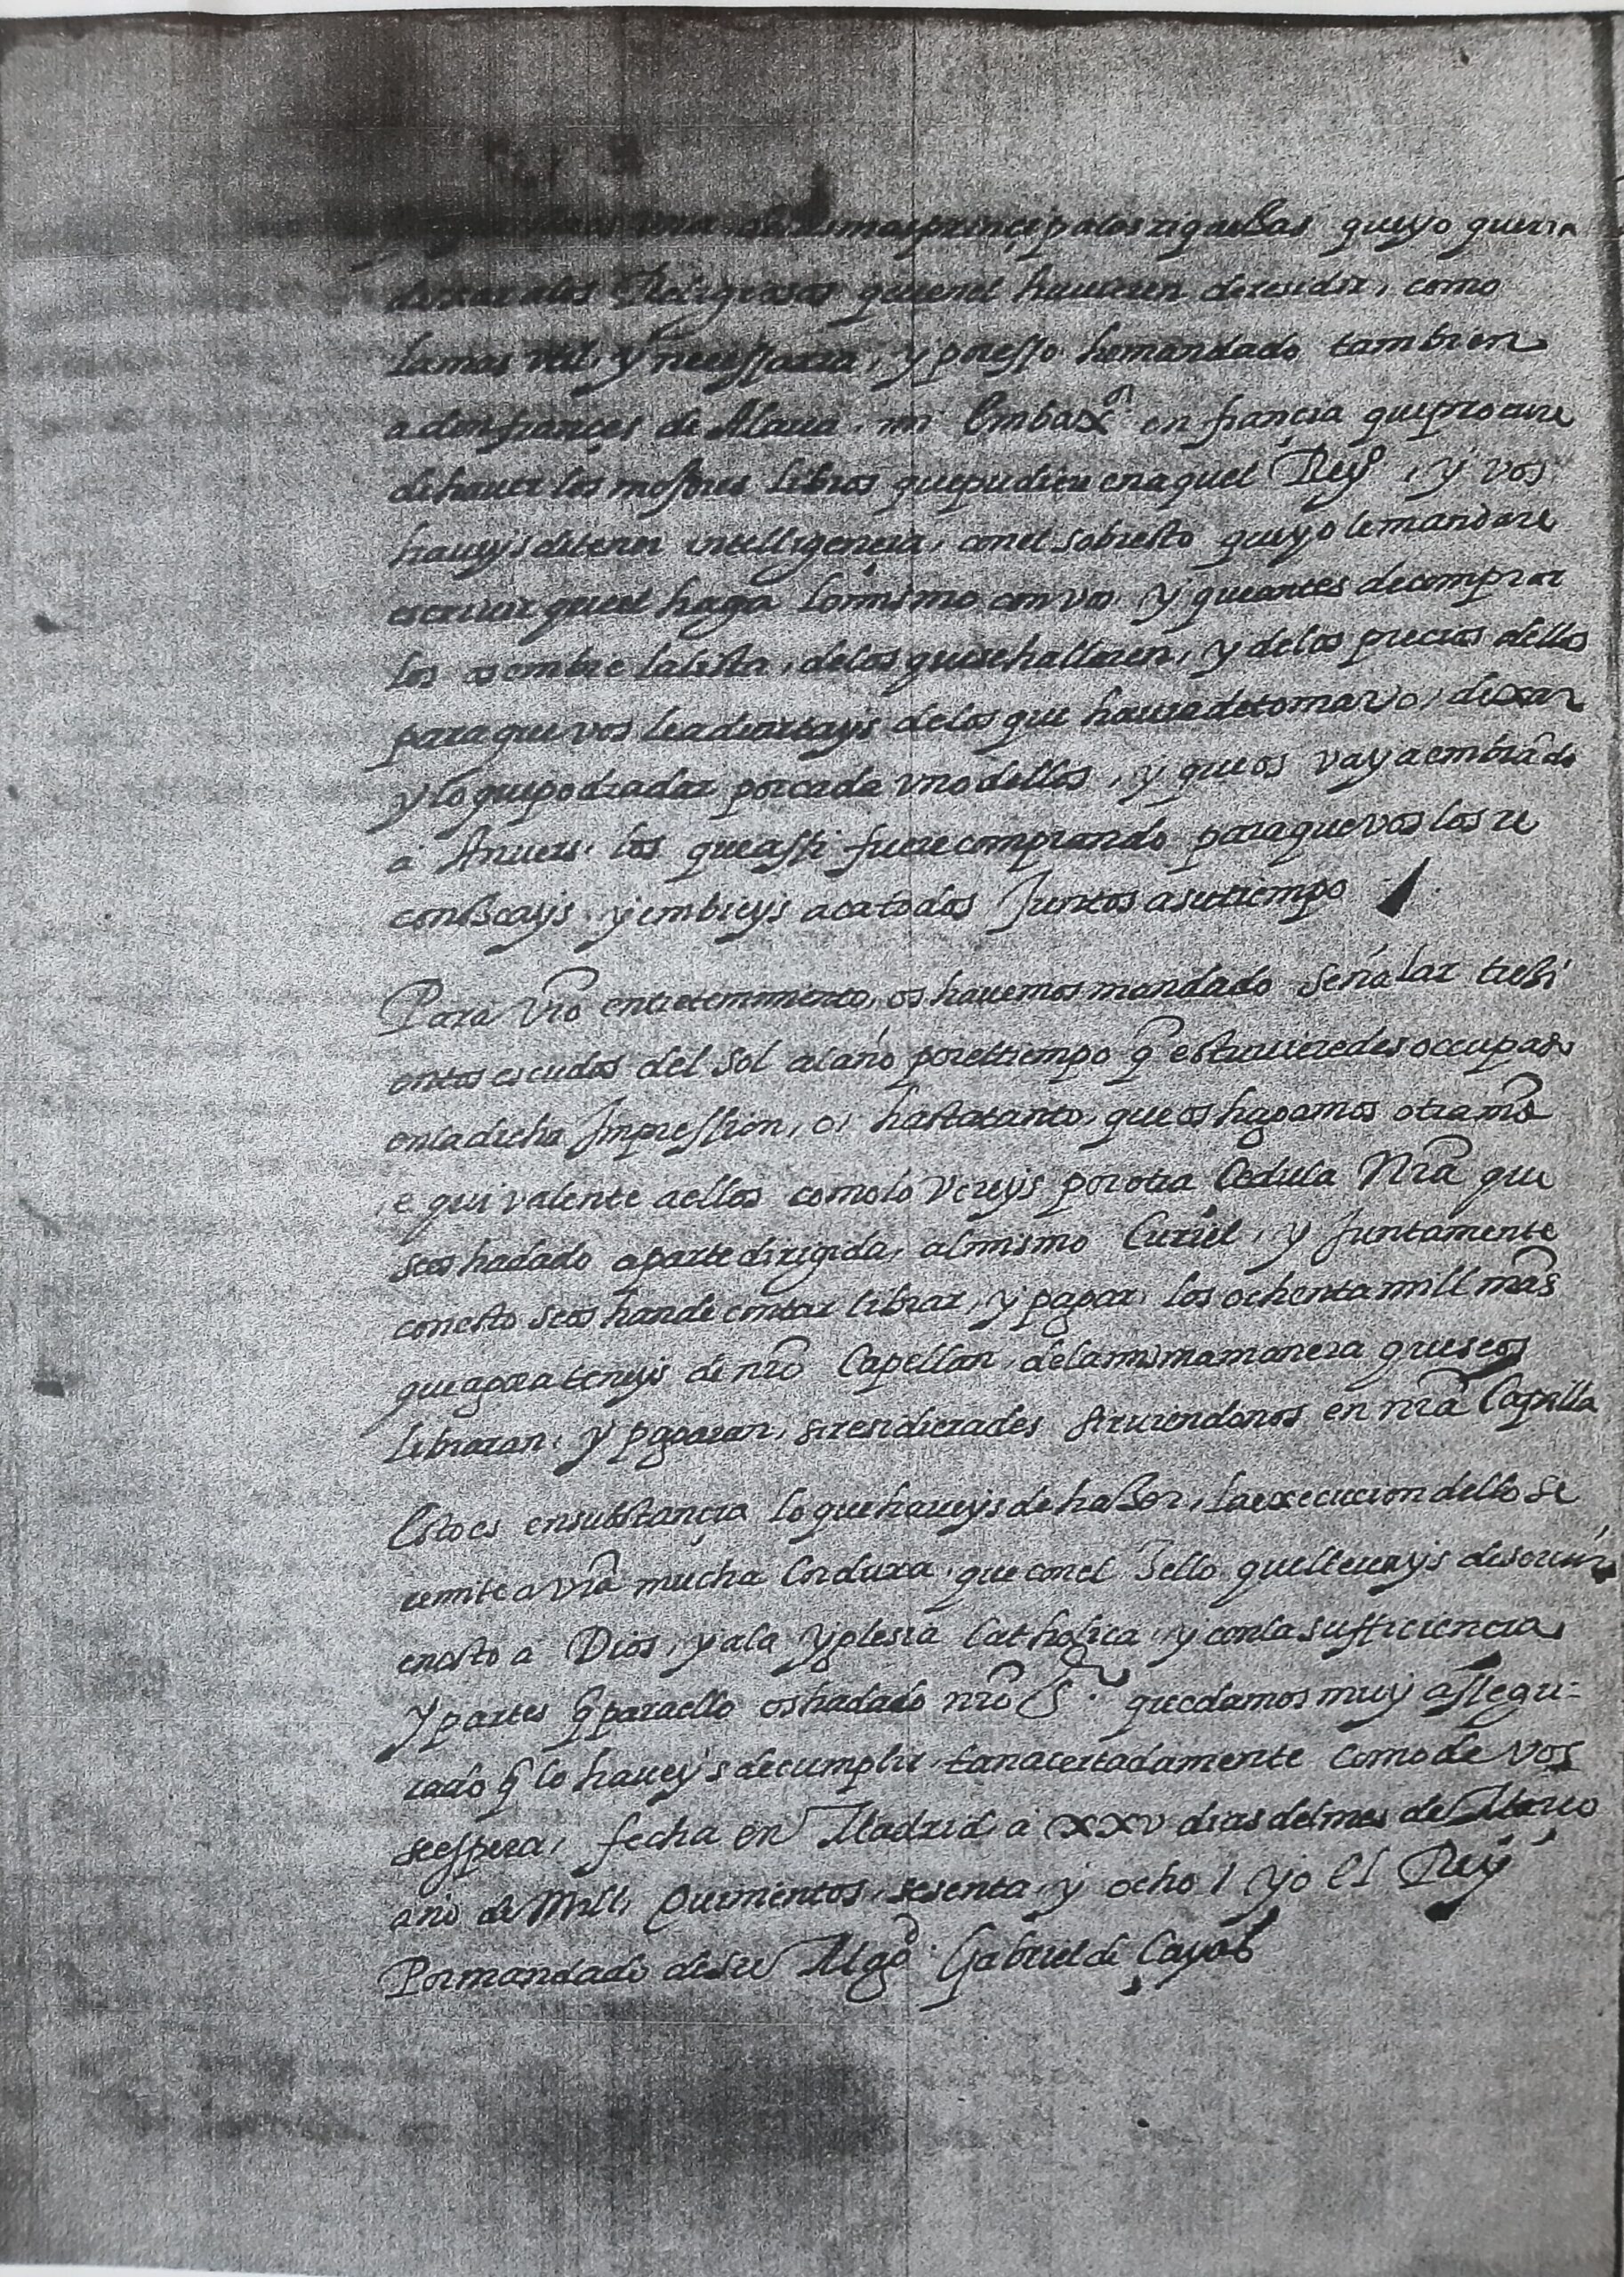 una de las mas prinçipales riquezas que yo querria
dexar a los Religiosos que en el huuieren de residir, como
la mas util, y necessaria, y por esso he mandado tambien
a don françes de Alaua, mi Embaxor en françia que procure
de hauer los mejores libros que pudiere en aquel Reyo, y vos
haueys de tener intelligençia, con el sobresto que yo le mandare
escriuir que el haga lo mismo con vos, y que antes de comprar
los os embie la lista, de los que se hallaren, y de los precios dellos
para que vos le aduirtays de los que haura de tomar, o, dexar
y lo que podra dar por cada uno dellos, y que os vaya embiãdo
a Anuers los que assi fuere comprando para que vos los re
conozcays, y embieys aca todos Juntos a su tiempo
Para vrõ entretenimiento, os hauemos mandado señalar trezi
entos escudos del sol al año por el tiempo q̃ estuuieredes occupado
en la dicha Impression, o, hasta tanto, que os hagamos otra mrd̃
equivalente a ellos como lo vereys por otra Cedula Nrã que
se os ha dado aparte dirigida, al mismo Curiel, y Juntamente
con esto se os han de contar librar, y pagar, los ochenta mill mrs̃
que agora teneys de nrõ Capellan, de la misma manera que se os
libraran, y pagaran, si residierades siruiendonos en nrã Capilla
Esto es en substançia lo que haueys de hazer, la execucion dello se
remite a vrã mucha Cordura, que con el Zello que lleuays de seruir
en esto a Dios, y a la yglesia Catholica, y con la sufficiencia
y partes q̃ para ello os ha dado nrõ Sor quedamos muy assegu=
rado q̃ lo haueys de cumplir tan acertadamente como de vos
se espera, fecha en Madrid a xxv dias del mes de Março
año de Mill, quinientos, sesenta, y ocho / yo el Rey
Por mandado de su Magd Gabriel de Çayas